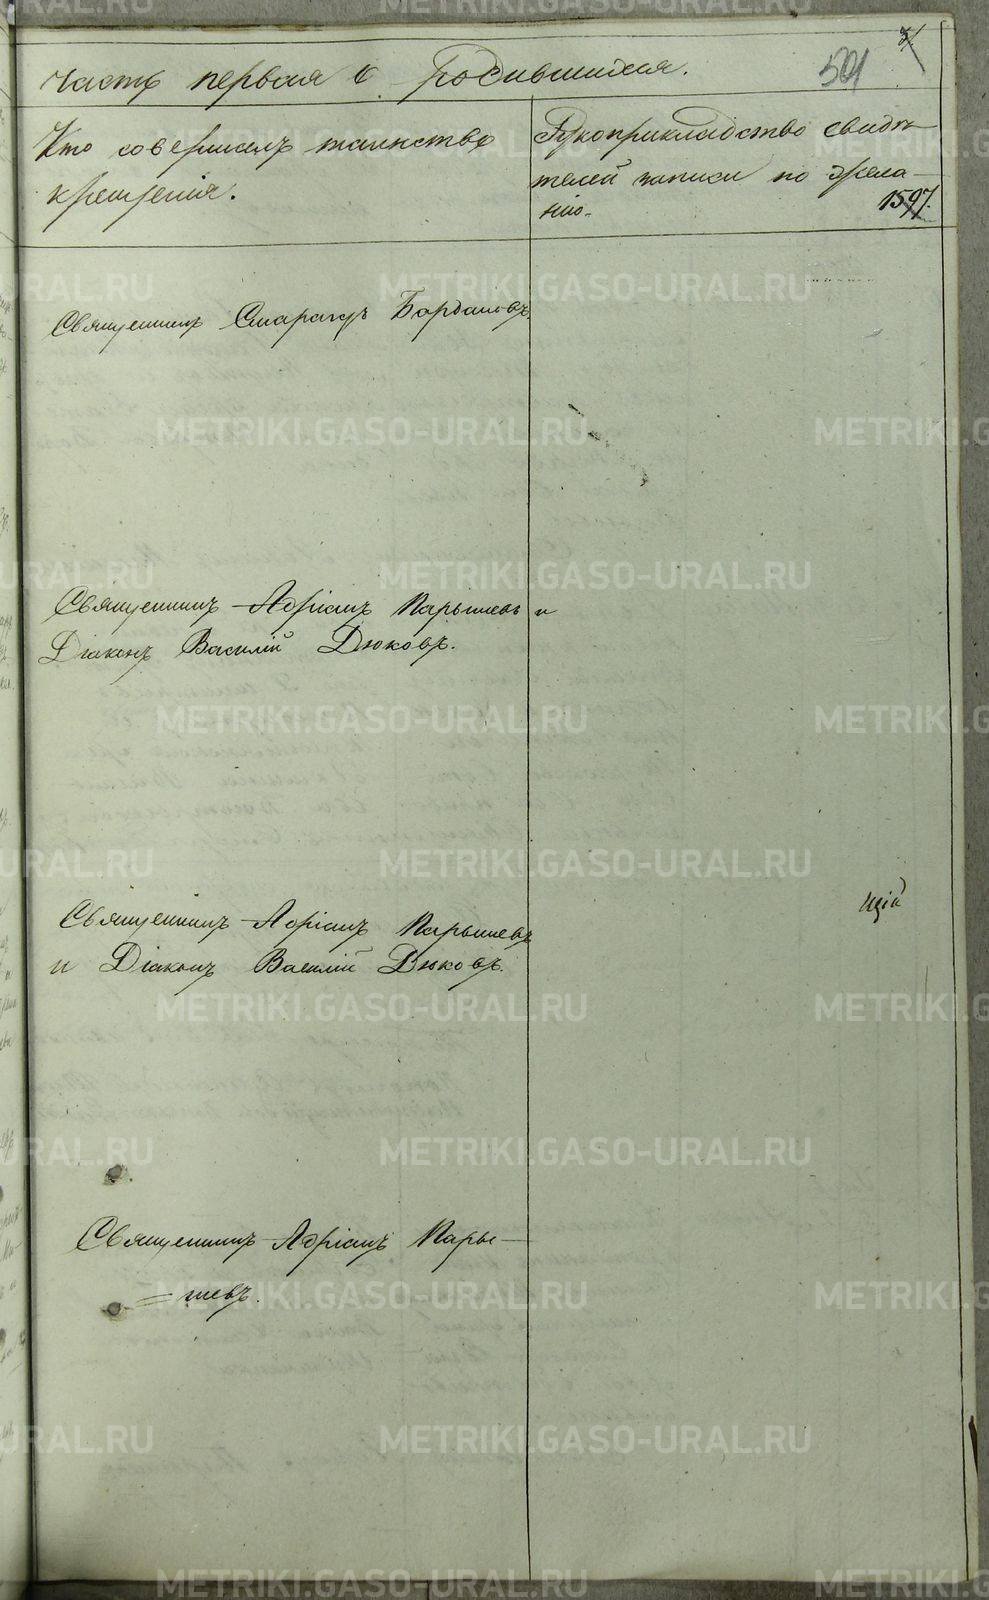 часть первая о родившихся.
501
Кто совершилъ таинство
крещенія.
Рукоприкладство свидѣ
телей записи по жела-
нію.
1597.
Священникъ Смарагдъ Бордаковъ.
Священникъ Адріанъ Парышевъ и
Діаконъ Василій Дюковъ.
Священникъ Адріанъ Парышевъ
и Діаконъ Василій Дюковъ.
щій
Священникъ Адріанъ Пары-
=шевъ.
METRIKI.GASO-URAL.RU